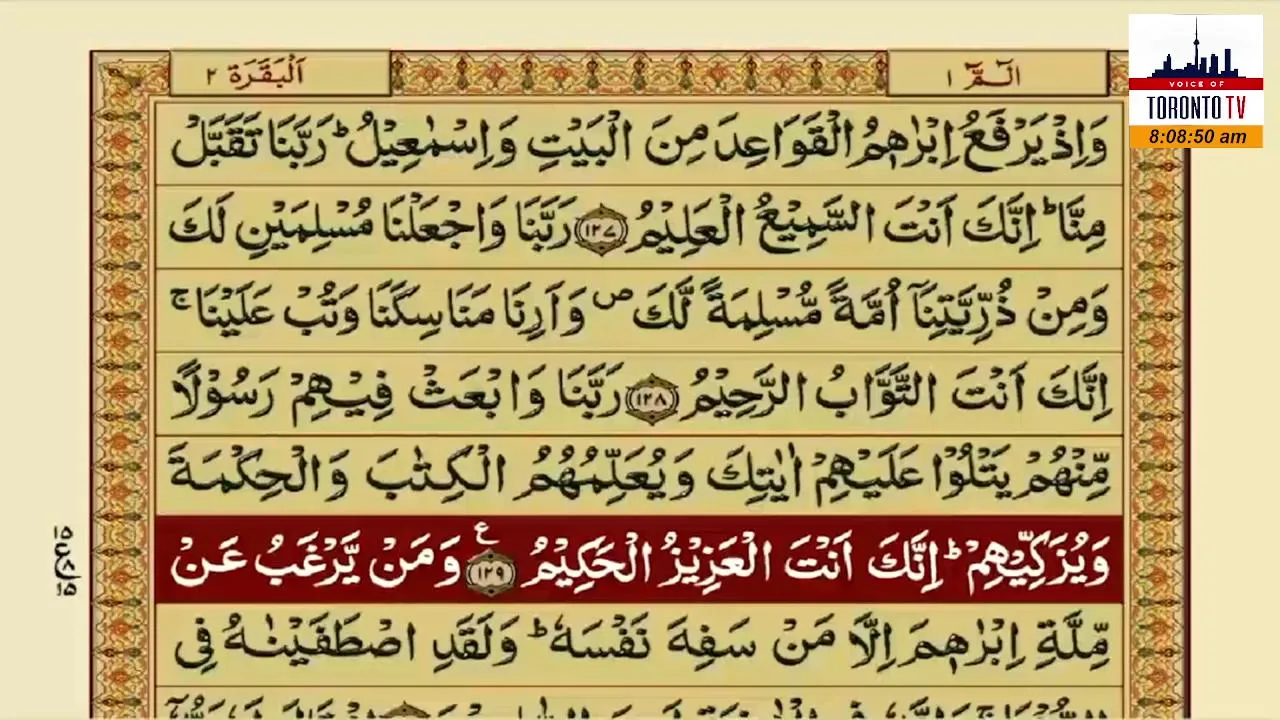 الٓمّٓ ١
اَلْبَقَرَة ٢
VOICE OF
TORONTO TV
8:08:50 am
وَاِذْ يَرْفَعُ اِبْرٰهٖمُ الْقَوَاعِدَ مِنَ الْبَيْتِ وَاِسْمٰعِيْلُ ؕ رَبَّنَا تَقَبَّلْ
مِنَّا ؕ اِنَّكَ اَنْتَ السَّمِيْعُ الْعَلِيْمُ ١٢٧ رَبَّنَا وَاجْعَلْنَا مُسْلِمَيْنِ لَكَ
وَمِنْ ذُرِّيَّتِنَاۤ اُمَّةً مُّسْلِمَةً لَّكَ ۖ وَاَرِنَا مَنَاسِكَنَا وَتُبْ عَلَيْنَا ۚ
اِنَّكَ اَنْتَ التَّوَّابُ الرَّحِيْمُ ١٢٨ رَبَّنَا وَابْعَثْ فِيْهِمْ رَسُوْلًا
مِّنْهُمْ يَتْلُوْا عَلَيْهِمْ اٰيٰتِكَ وَيُعَلِّمُهُمُ الْكِتٰبَ وَالْحِكْمَةَ
وَيُزَكِّيْهِمْ ؕ اِنَّكَ اَنْتَ الْعَزِيْزُ الْحَكِيْمُ ١٢٩ ع وَمَنْ يَّرْغَبُ عَنْ
مِّلَّةِ اِبْرٰهٖمَ اِلَّا مَنْ سَفِهَ نَفْسَهٗ ؕ وَلَقَدِ اصْطَفَيْنٰهُ فِى